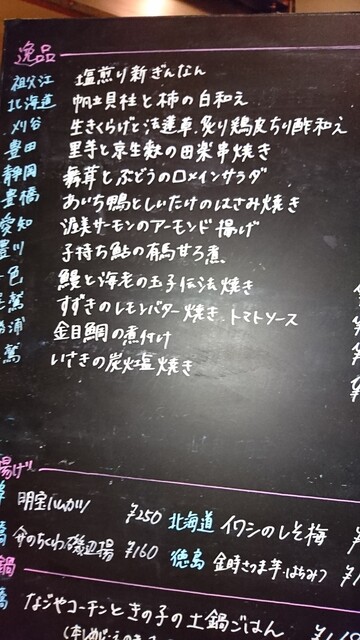 逸品
祖父江 塩煎り新ぎんなん
北海道 帆立貝柱と柿の白和え
刈谷 生きくらげと法蓮草、炙り鶏皮ちり酢和え
豊田 里芋と京生麩の田楽串焼き
静岡 舞茸とぶどうのロメインサラダ
豊橋 あいち鴨としいたけのはさみ焼き
愛知 渥美サーモンのアーモンド揚げ
豊川 子持ち鮎の有馬甘ろ煮
一色 鰻と海老の玉子伝法焼き
尾鷲 すずきのレモンバター焼き、トマトソース
浦 金目鯛の煮付け
鷲 いさきの炭塩焼き
揚げ
明宝ハムカツ ¥250 北海道 イワシのしそ梅
のちくわ磯辺揚 ¥160 徳島 金時さつま芋・はちみつ
鍋
なごやコーチンときの子の土鍋ごはん